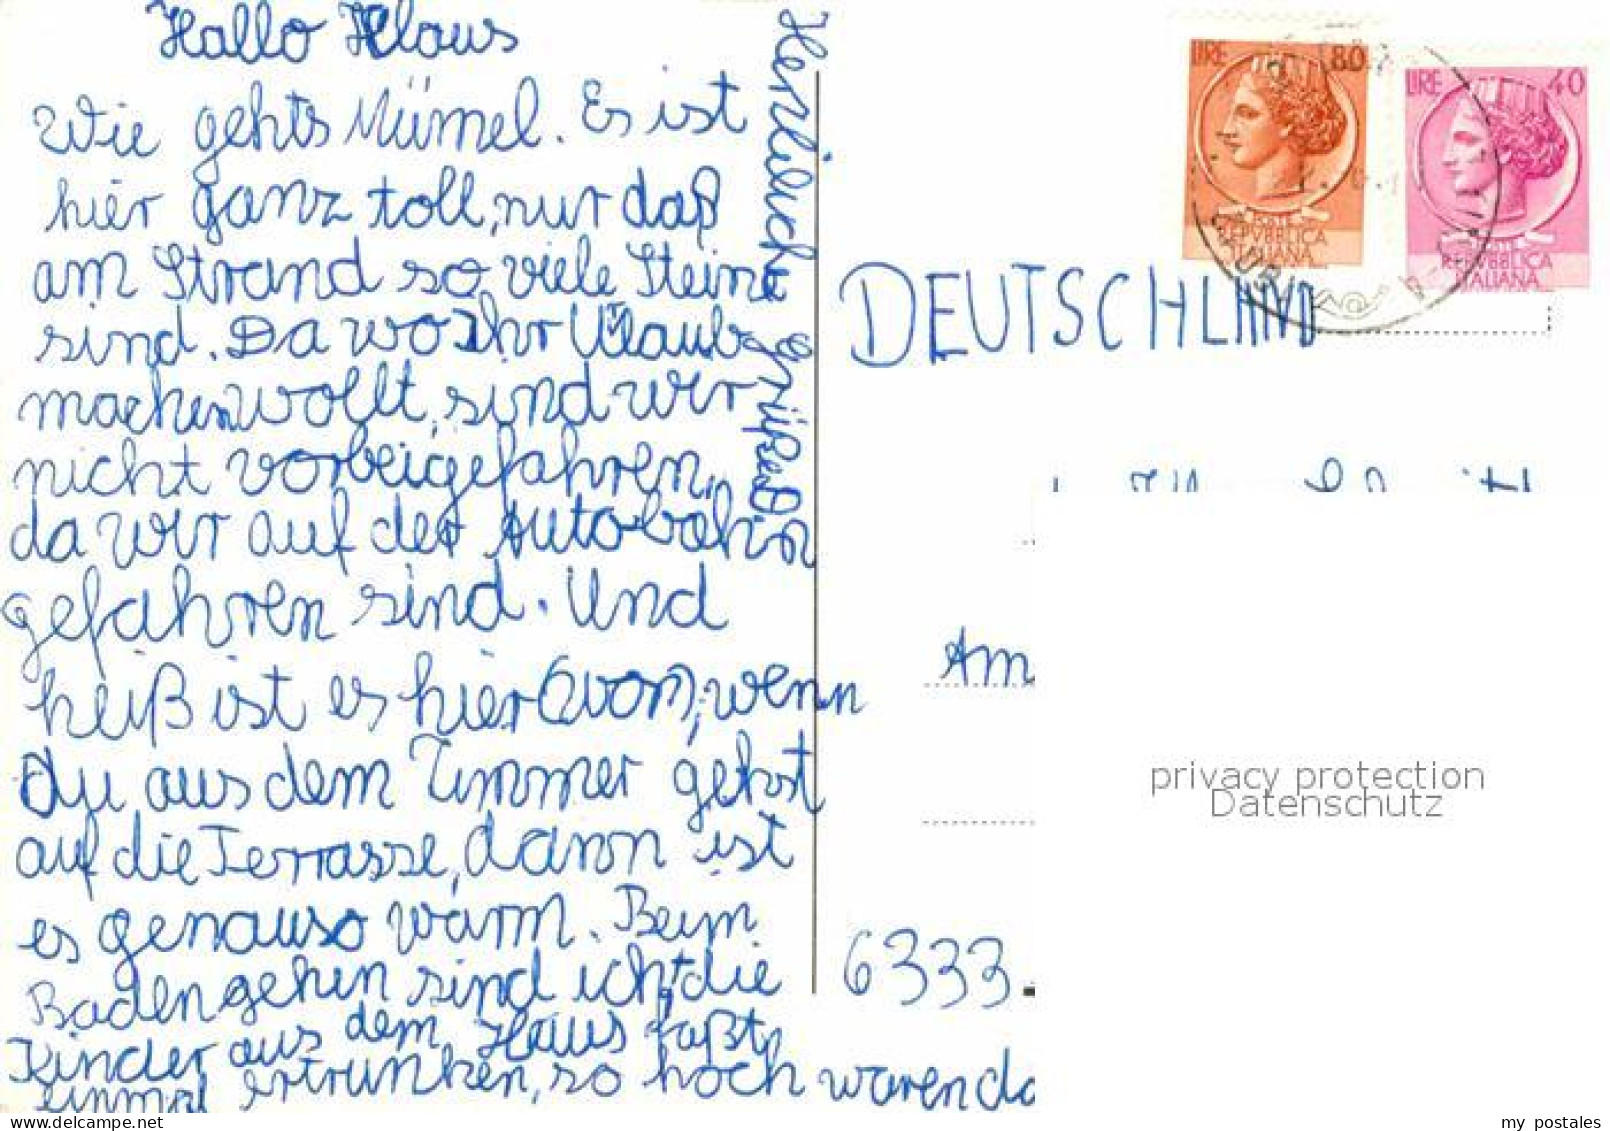 Hallo Klaus
Wie gehts Mümel. Es ist
hier ganz toll, nur daß
am Strand so viele Steine
sind. Da wo Ihr Urlaub
machen wollt, sind wir
nicht vorbeigefahren,
da wir auf der Autobahn
gefahren sind. Und
heiß ist es hier (von), wenn
du aus dem Zimmer gehst
auf die Terrasse, dann ist
es genauso warm. Beim
Baden gehen sind ich, die
Kinder aus dem Haus faßt
einmal ertrunken, so hoch waren da
Herzliche Grüße
LIRE 80
POSTE
REPVBBLICA
ITALIANA
LIRE 40
POSTE
REPVBBLICA
ITALIANA
DEUTSCHLAND
Am
6333
privacy protection
Datenschutz
my postales